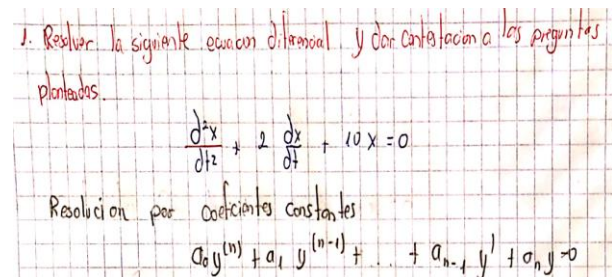 1. Resolver la siguiente ecuacon diferencial y dar contestacion a las preguntas
planteadas.
d²x/dt² + 2 dx/dt + 10x = 0
Resolucion por coeficientes constantes
a₀y⁽ⁿ⁾ + a₁ y⁽ⁿ⁻¹⁾ + . . + aₙ₋₁ y' + aₙy=0